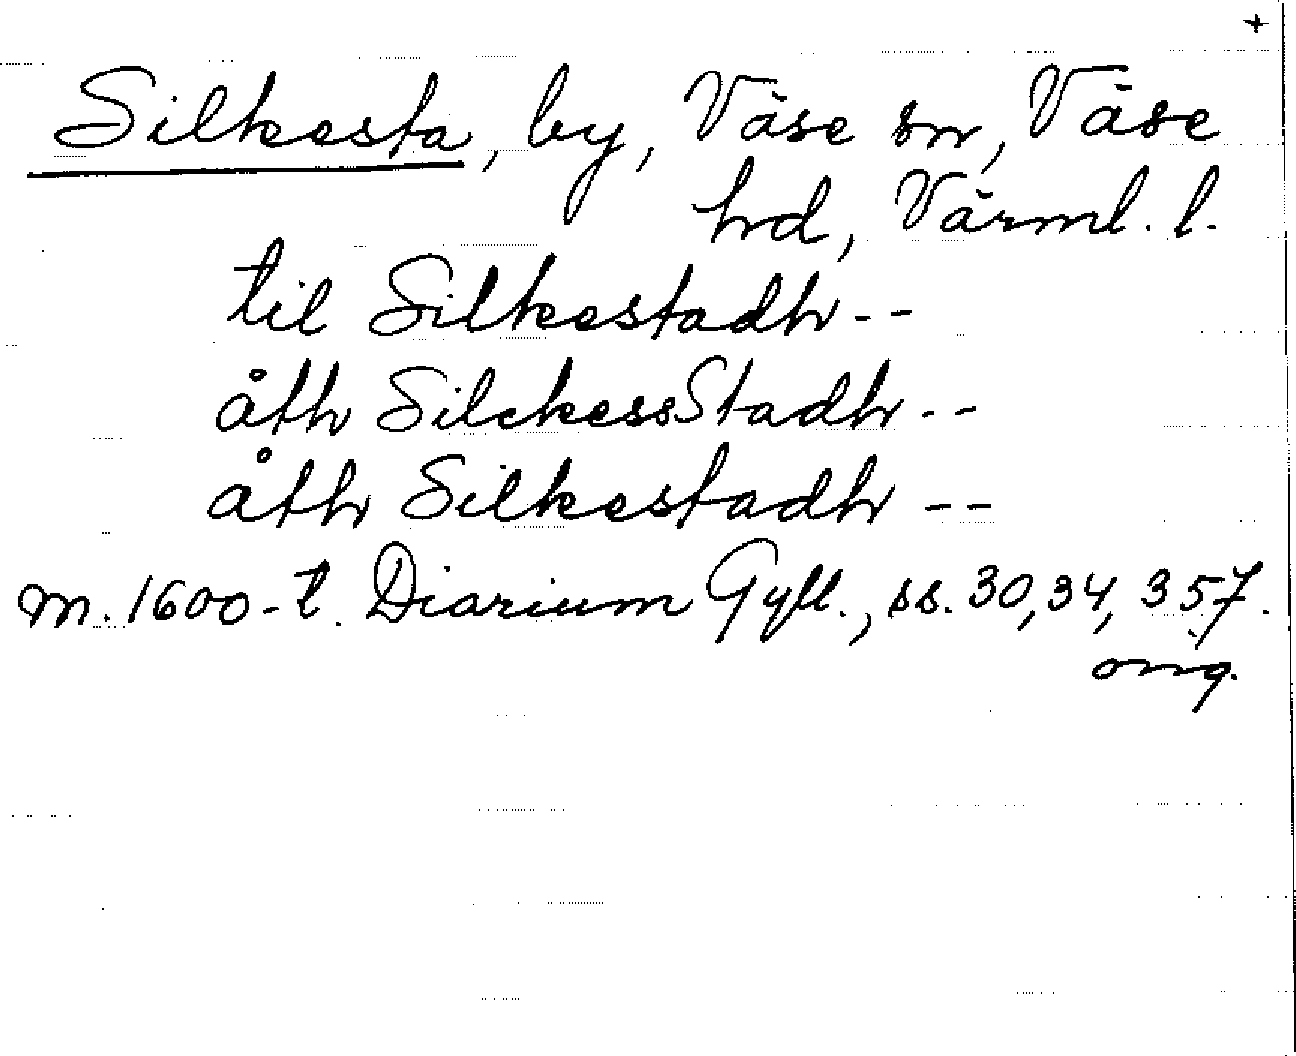 +
Silkesta, by, Väse sn, Väse
hrd, Värml. l.
til Silkestadh--
åth SilckessStadh--
åth Silkestadh--
m. 1600-t. Diarium Gyll., ss. 30, 34, 357.
omg.